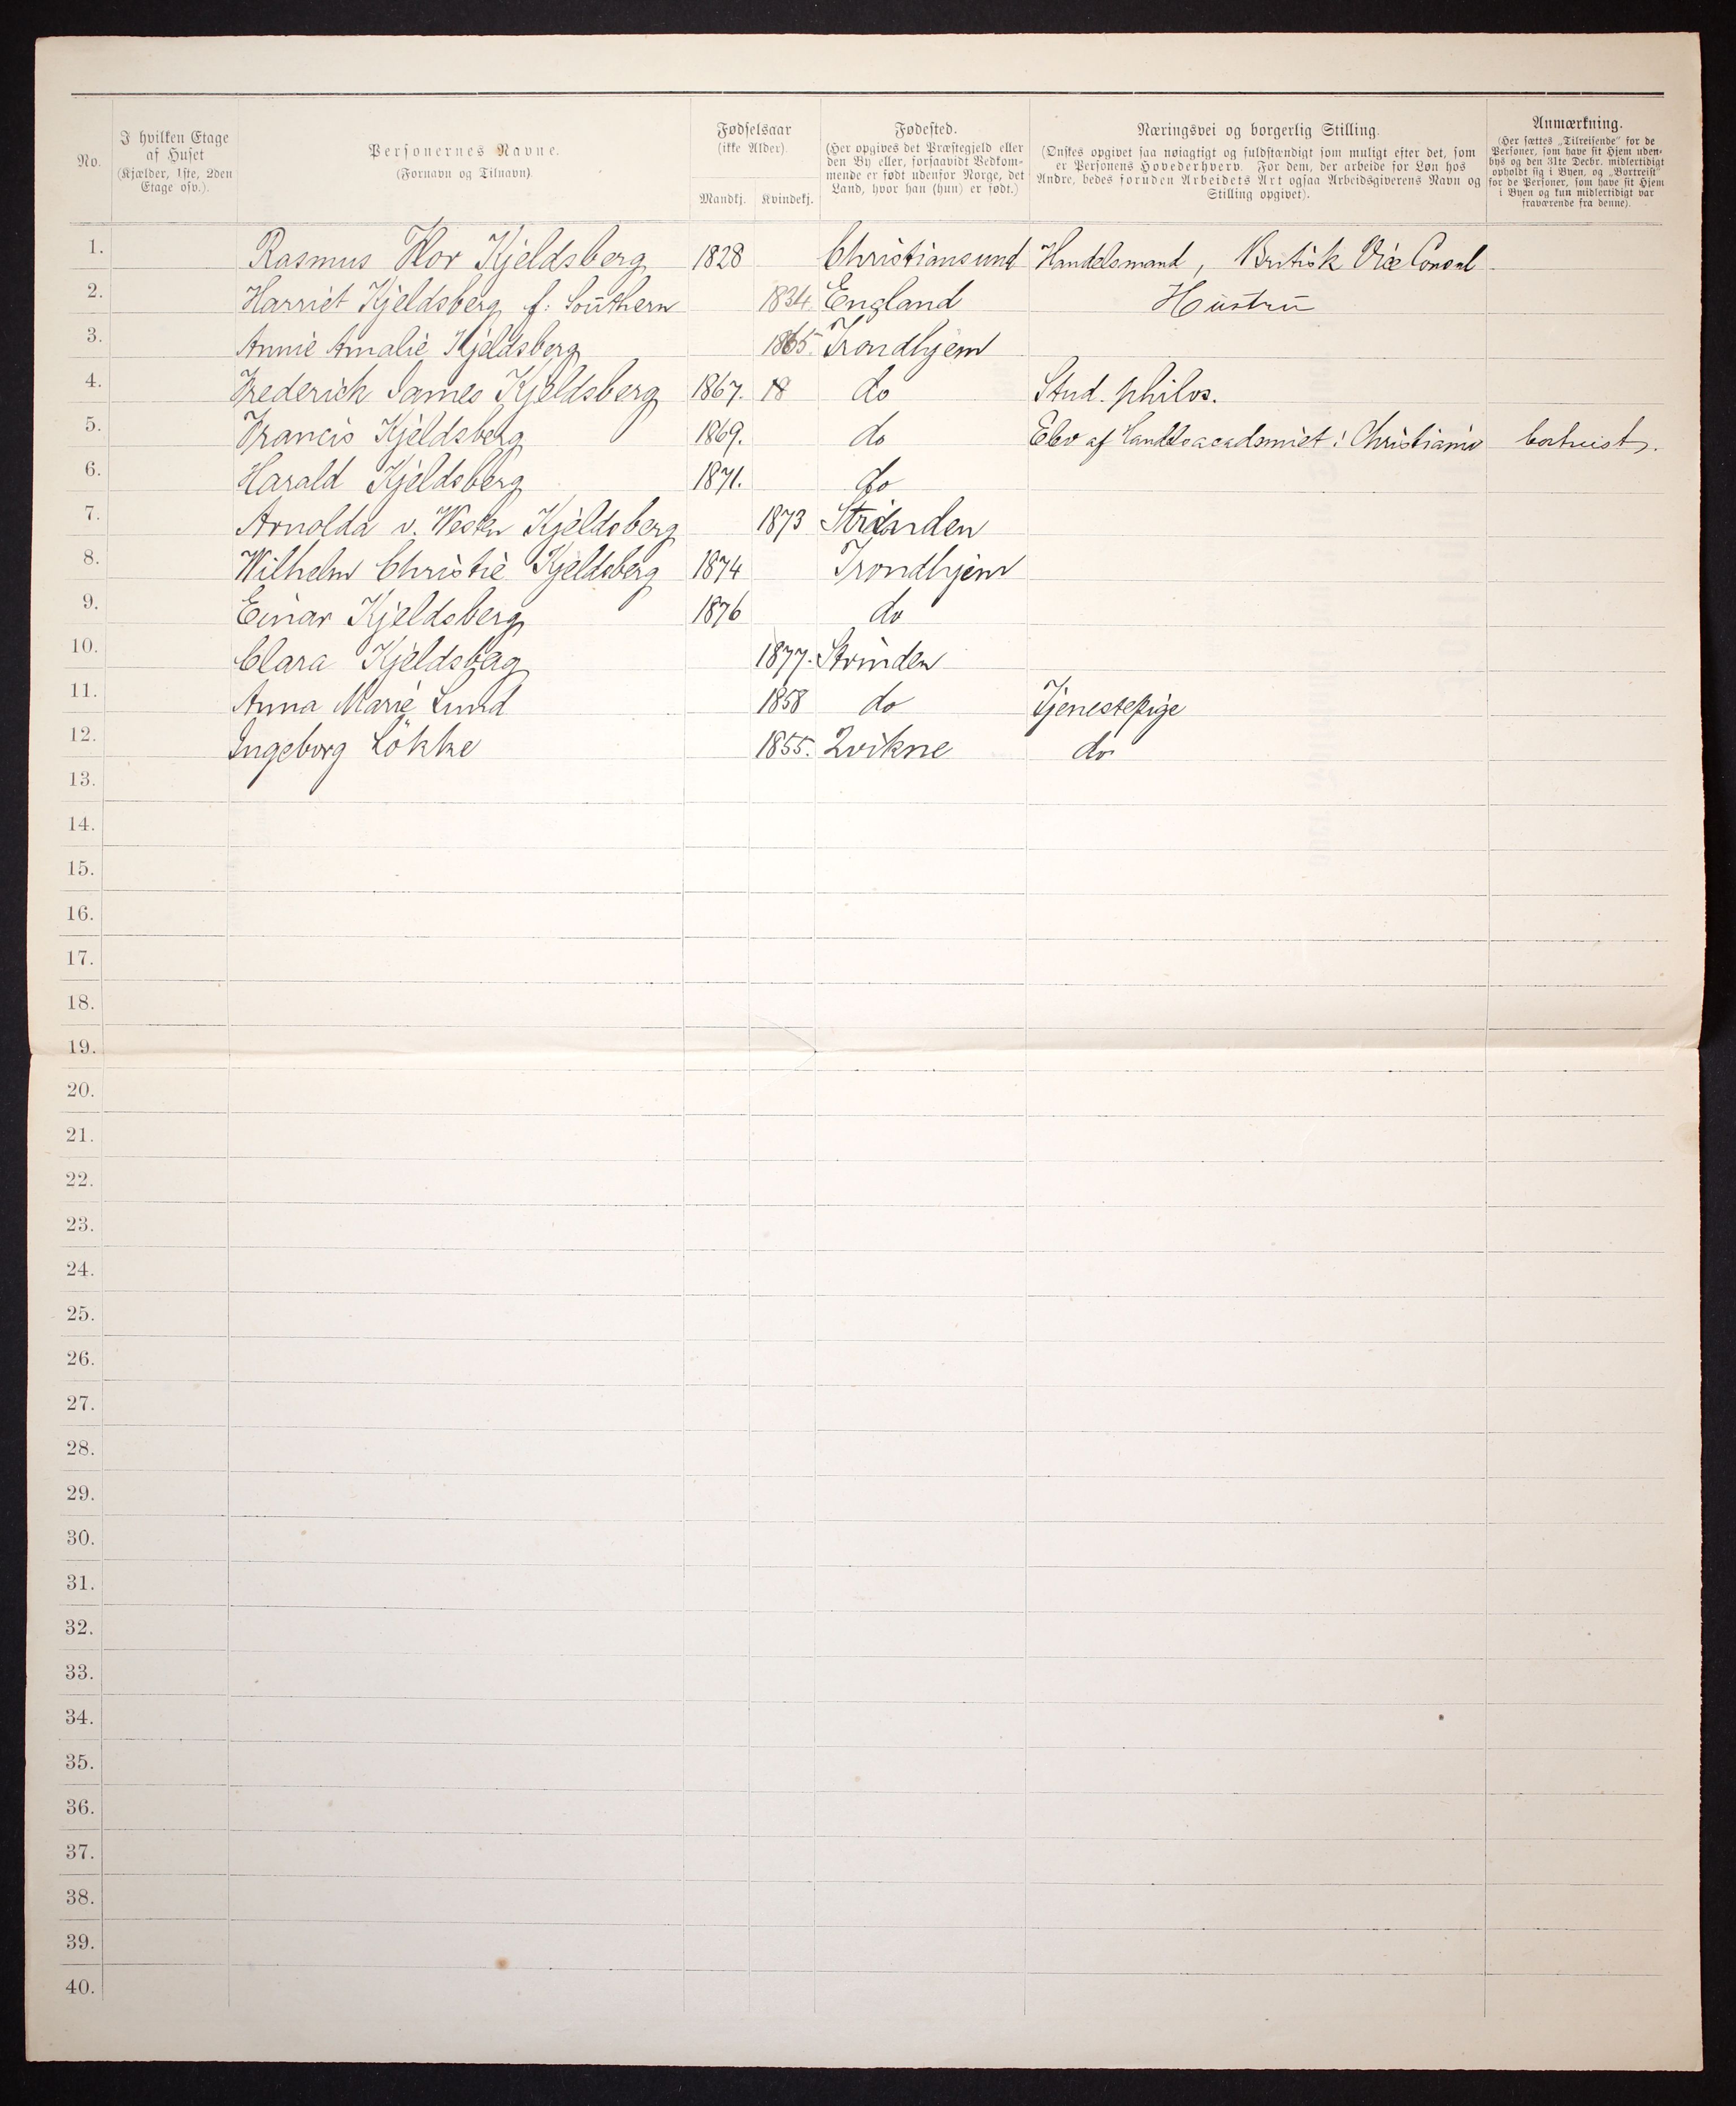 No.
I hvilken Etage
af Huset
(Kjælder, 1ste, 2den
Etage osv.).
Personernes Navne.
(Fornavn og Tilnavn)
Fødselsaar
(ikke Alder).
Mandkj. Kvindekj.
Fødested.
(Her opgives det Præstegjeld eller
den By eller, forsaavidt Vedkom-
mende er født udenfor Norge, det
Land, hvor han (hun) er født.)
Næringsvei og borgerlig Stilling.
(Ønskes opgivet saa nøiagtigt og fuldstændigt som muligt efter det, som
er Personens Hovederhverv. For dem, der arbeide for Løn hos
Andre, bedes foruden Arbeidets Art ogsaa Arbeidsgiverens Navn og
Stilling opgivet).
Anmærkning.
(Her sættes „Tilreisende" for de
Personer, som have sit Hjem uden-
bys og den 31te Decbr. midlertidigt
opholdt sig i Byen, og „Bortreist"
for de Personer, som have sit Hjem
i Byen og kun midlertidigt var
fraværende fra denne).
1. Rasmus Flor Kjeldsberg 1828 Christiansund Handelsmand, Britisk Vice Consul
2. Harriet Kjeldsberg f: Southern 1834 England Hustru
3. Annie Amalie Kjeldsberg 1865. Trondhjem
4. Frederick James Kjeldsberg 1867. 18 do Stud. philos.
5. Francis Kjeldsberg 1869. do Elev af Handelsacademiet i Christiania bortreist.
6. Harald Kjeldsberg 1871. do
7. Arnolda v. Westen Kjeldsberg 1873 Strinden
8. Wilhelm Christie Kjeldsberg 1874 Trondhjem
9. Einar Kjeldsberg 1876 do
10. Clara Kjeldsbag 1877. Strinden
11. Anna Marie Lund 1858 do Tjenestepige
12. Ingeborg Lökke 1855. Qvikne do
13.
14.
15.
16.
17.
18.
19.
20.
21.
22.
23.
24.
25.
26.
27.
28.
29.
30.
31.
32.
33.
34.
35.
36.
37.
38.
39.
40.